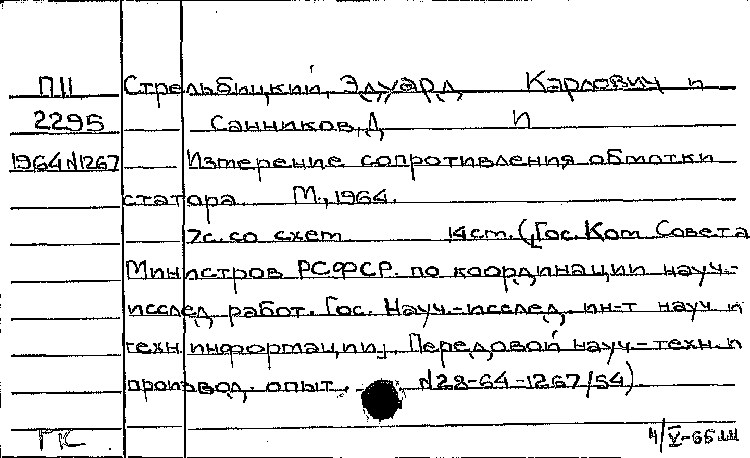 П11 Стрельбицкий, Эдуард Карлович и
2295 Санников, Д И
1964 N1267 Измерение сопротивления обмотки
статора М., 1964.
7с. со схем 14 ст. (Гос. Ком Совета
Министров РСФСР. по координации науч.-
исслед работ. Гос. Науч.-исслед. ин-т науч и
техн информации, Передовой науч-техн. и
производ. опыт. N28-64-1267/54)
ГК 4/V-65